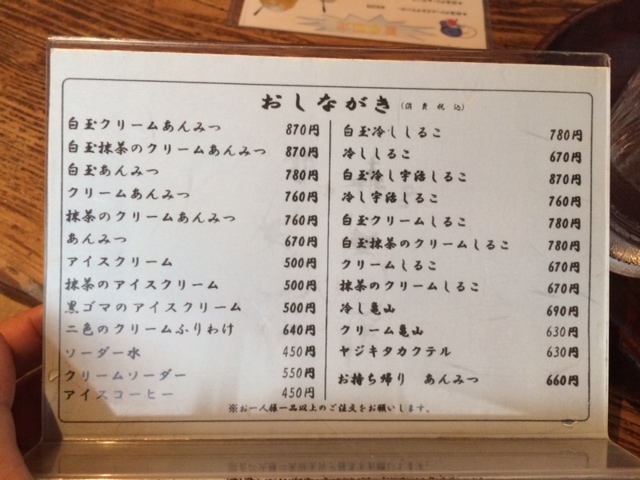 おしながき(消費税込)
白玉クリームあんみつ 870円
白玉抹茶のクリームあんみつ 870円
白玉あんみつ 780円
クリームあんみつ 760円
抹茶のクリームあんみつ 760円
あんみつ 670円
アイスクリーム 500円
抹茶のアイスクリーム 500円
黒ゴマのアイスクリーム 500円
二色のクリームふりわけ 640円
ソーダー水 450円
クリームソーダー 550円
アイスコーヒー 450円
白玉冷ししるこ 780円
冷ししるこ 670円
白玉冷し宇治しるこ 870円
冷し宇治しるこ 760円
白玉クリームしるこ 780円
白玉抹茶のクリームしるこ 780円
クリームしるこ 670円
抹茶のクリームしるこ 670円
冷し亀山 690円
クリーム亀山 630円
ヤジキタカクテル 630円
お持ち帰り あんみつ 660円
※お一人様一品以上のご注文をお願いします。